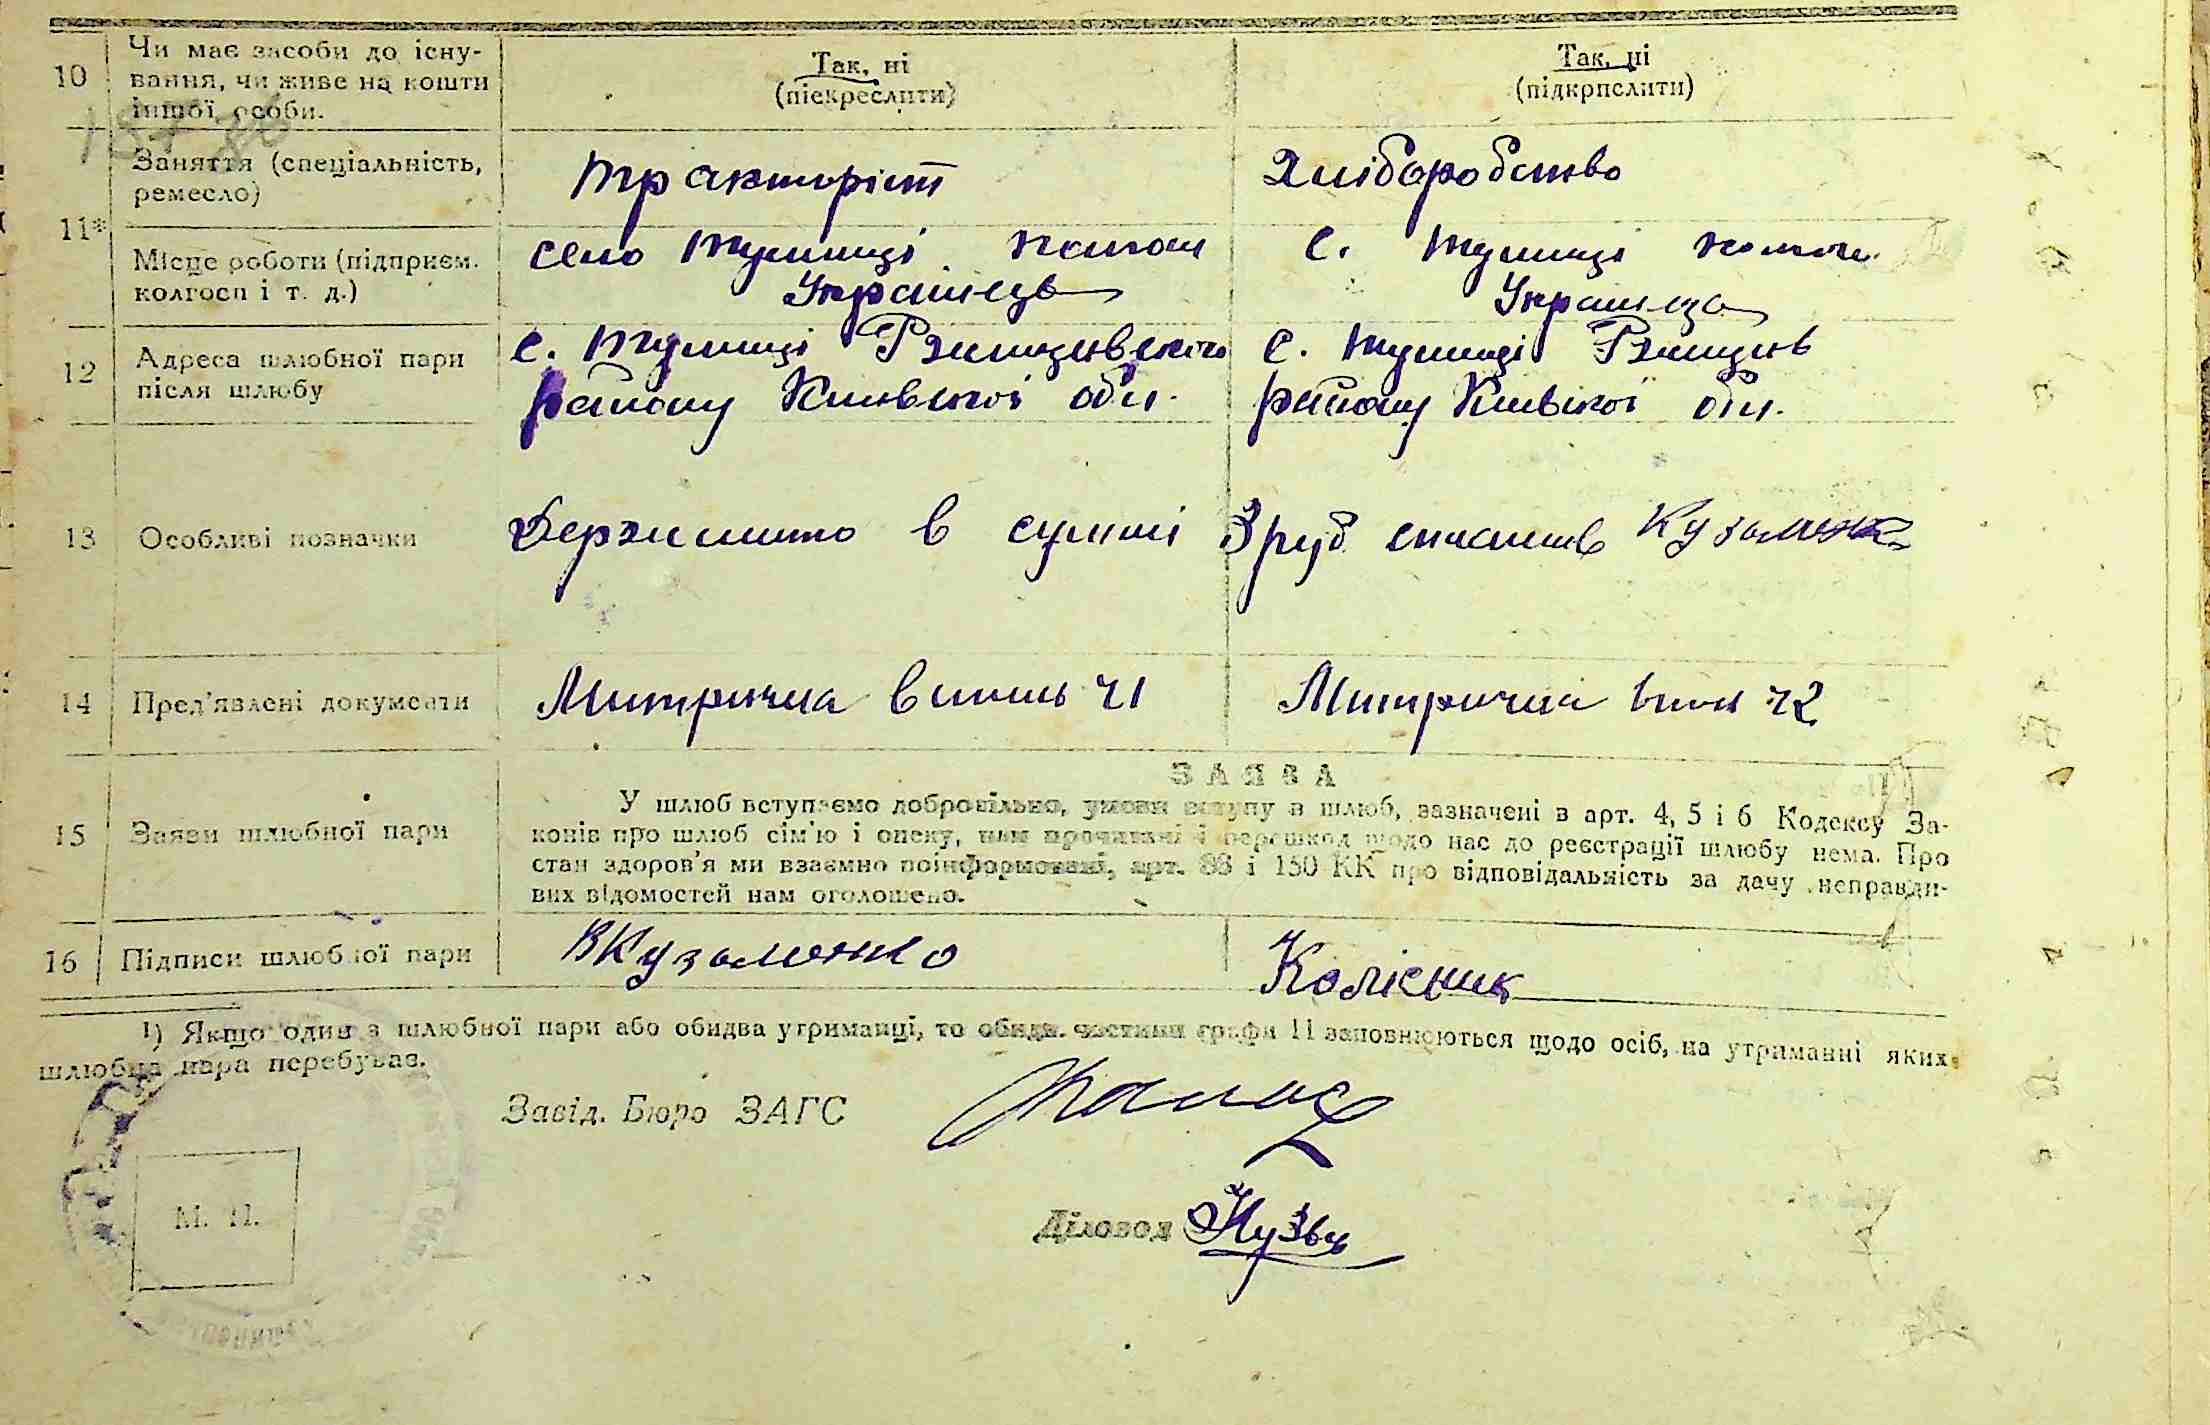 10 Чи має засоби до існу-
вання, чи живе на кошти
іншої особи.
Так, ні
(піекреслити)
Так, ні
(підкрпслити)
11* Заняття (спеціальність,
ремесло)
тракторіст
Хліборобство
Місце роботи (підприєм.
колгосп і т. д.)
село Тулинці
Українець
с. Тулинці
12 Адреса шлюбної пари
після шлюбу
с. Тулинці
району Київської обл.
с. Тулинці Ржищів
району Київської обл.
13 Особливі позначки
в сумі 3 руб. сплатив Кузьменко
14 Пред'явлені документи
Митрична випись 41
Митрична 42
15 Заяви шлюбної пари
ЗАЯВА
У шлюб вступаємо добровільно, умови вступу в шлюб, зазначені в арт. 4, 5 і 6 Кодексу За-
конів про шлюб сім'ю і опеку, нам прочитані і перешкод щодо нас до реєстрації шлюбу нема. Про
стан здоров'я ми взаємно поінформовані, арт. 88 і 150 КК про відповідальність за дачу неправди-
вих відомостей нам оголошено.
16 Підписи шлюбної пари
ВКузьменко
Колісник
1) Якщо один з шлюбної пари або обидва утриманці, то обидві частини графи 11 заповнюються щодо осіб, на утриманні яких
шлюбна пара перебуває.
Завід. Бюро ЗАГС
Діловод
М. П.